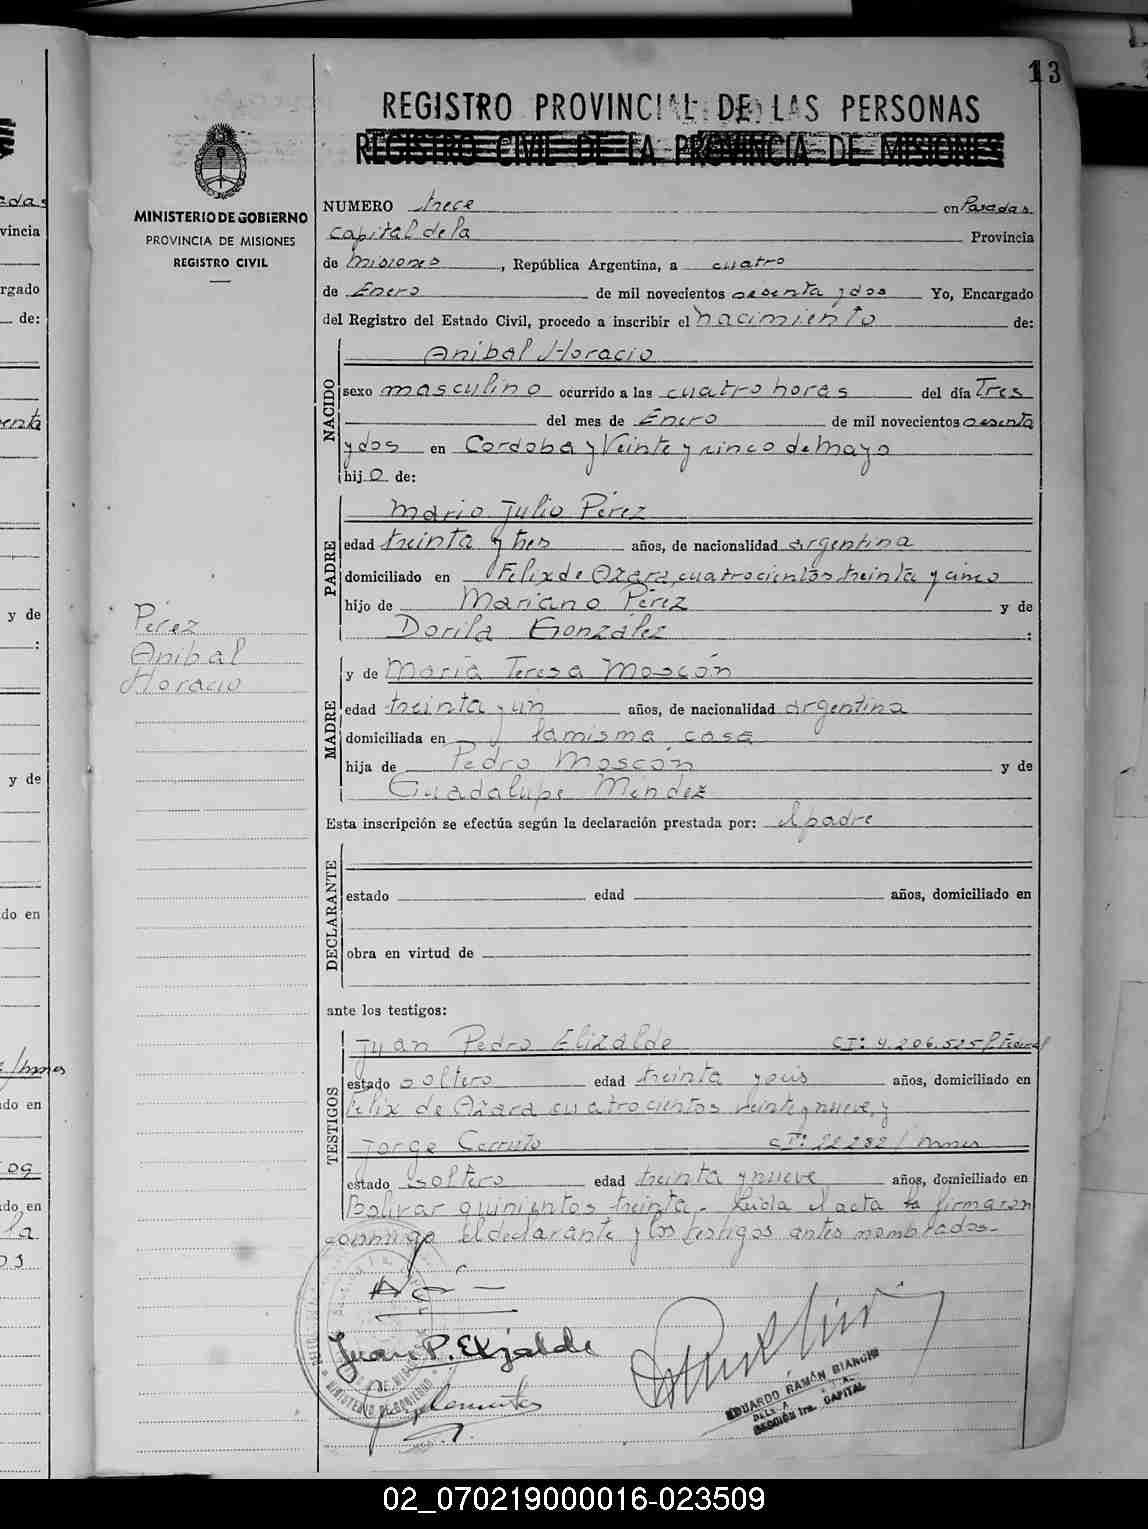 13
REGISTRO PROVINCIAL DE LAS PERSONAS
REGISTRO CIVIL DE LA PROVINCIA DE MISIONES
MINISTERIO DE GOBIERNO
PROVINCIA DE MISIONES
REGISTRO CIVIL
NUMERO trece en Posadas
Capital de la Provincia
de Misiones, República Argentina, a cuatro
de Enero de mil novecientos sesenta y dos Yo, Encargado
del Registro del Estado Civil, procedo a inscribir el nacimiento de:
NACIDO
Anibal Horacio
sexo masculino ocurrido a las cuatro horas del día Tres
del mes de Enero de mil novecientos sesenta
y dos en Cordoba y Veinte y cinco de Mayo
hijo de:
PADRE
Mario Julio Pérez
edad treinta y tres años, de nacionalidad argentina
domiciliado en Felix de Azara cuatrocientos treinta y cinco
hijo de Mariano Pérez y de
Dorila González :
Pérez
Anibal
Horacio
MADRE
y de Maria Teresa Moscón
edad treinta y un años, de nacionalidad argentina
domiciliada en la misma casa
hija de Pedro Moscón y de
Guadalupe Méndez
Esta inscripción se efectúa según la declaración prestada por: el padre
DECLARANTE
estado edad años, domiciliado en
obra en virtud de
ante los testigos:
TESTIGOS
Juan Pedro Elizalde CI: 4.206.525 P. Federal
estado soltero edad treinta y seis años, domiciliado en
Felix de Azara cuatrocientos veinte y nueve, y
Jorge Cerruto CI: 22282/Mnes
estado soltero edad treinta y nueve años, domiciliado en
Bolivar quinientos treinta. Leida el acta la firmaron
conmigo el declarante y los testigos antes nombrados.
Juan P. Elizalde
MINISTERIO DE GOBIERNO
EDUARDO RAMÓN BIANCHI
SECCIÓN 1ra. CAPITAL
02_070219000016-023509